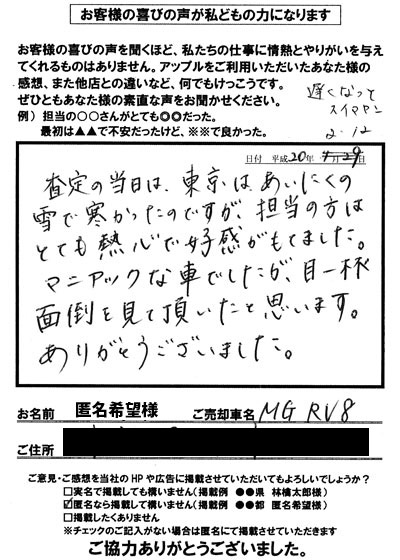 お客様の喜びの声が私どもの力になります
お客様の喜びの声を聞くほど、私たちの仕事に情熱とやりがいを与え
てくれるものはありません。アップルをご利用いただいたあなた様の
感想、また他店との違いなど、何でもけっこうです。
ぜひともあなた様の素直な声をお聞かせください。
例）担当の○○さんがとても◎◎だった。
最初は▲▲で不安だったけど、※※で良かった。
遅くなって
スイマセン
2.12
日付 平成20年 1月29日
査定の当日は、東京はあいにくの
雪で寒かったのですが、担当の方は
とても熱心で好感がもてました。
マニアックな車でしたが、目一杯
面倒を見て頂いたと思います。
ありがとうございました。
お名前 匿名希望様 ご売却車名 MG RV8
ご住所
ご意見・ご感想を当社のHPや広告に掲載させていただいてもよろしいでしょうか？
□実名で掲載しても構いません（掲載例 ●●県 林檎太郎様）
☑匿名なら掲載しても構いません（掲載例 ●●都 匿名希望様）
□掲載したくありません
※チェックのご記入がない場合は匿名にて掲載させていただきます
ご協力ありがとうございました。